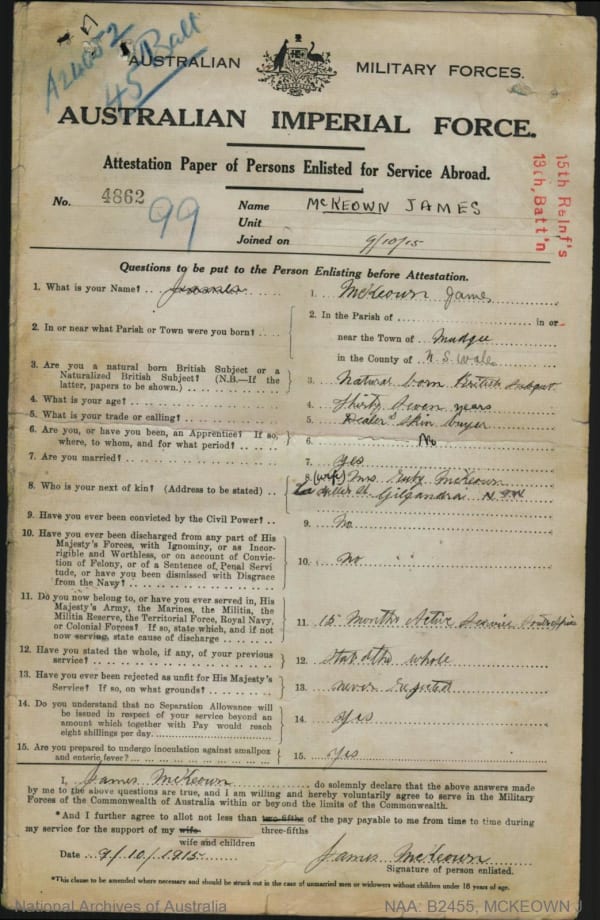 A24052
45 Batt
AUSTRALIAN MILITARY FORCES.
AUSTRALIAN IMPERIAL FORCE.
Attestation Paper of Persons Enlisted for Service Abroad.
15th Reinf's
13th, Batt'n
No. 4862
99
Name McKEOWN JAMES
Unit
Joined on 9/10/15
Questions to be put to the Person Enlisting before Attestation.
1. What is your Name? .. James 1. McKeown James
2. In or near what Parish or Town were you born? .... 2. In the Parish of ........ in or
near the Town of Mudgee
in the County of N. S. Wales
3. Are you a natural born British Subject or a
Naturalized British Subject? (N.B.—If the
latter, papers to be shown.) 3. Natural born British Subject
4. What is your age? 4. Thirty Seven years
5. What is your trade or calling? 5. Dealer & Skin buyer
6. Are you, or have you been, an Apprentice? If so,
where, to whom, and for what period? 6. No
7. Are you married? 7. yes
8. Who is your next of kin? (Address to be stated) .. 8. (wife) Mrs. McKeown
Gilgandra N.S.W
9. Have you ever been convicted by the Civil Power? .. 9. No
10. Have you ever been discharged from any part of His
Majesty's Forces, with Ignominy, or as Incor-
rigible and Worthless, or on account of Convic-
tion of Felony, or of a Sentence of Penal Servi-
tude, or have you been dismissed with Disgrace
from the Navy? 10. No
11. Do you now belong to, or have you ever served in, His
Majesty's Army, the Marines, the Militia, the
Militia Reserve, the Territorial Force, Royal Navy,
or Colonial Forces? If so, state which, and if not
now serving, state cause of discharge 11. 15 Months Active Service
12. Have you stated the whole, if any, of your previous
service? 12. the whole
13. Have you ever been rejected as unfit for His Majesty's
Service? If so, on what grounds? 13. never rejected
14. Do you understand that no Separation Allowance will
be issued in respect of your service beyond an
amount which together with Pay would reach
eight shillings per day. 14. Yes
15. Are you prepared to undergo inoculation against smallpox
and enteric fever? 15. Yes
I, James McKeown do solemnly declare that the above answers made
by me to the above questions are true, and I am willing and hereby voluntarily agree to serve in the Military
Forces of the Commonwealth of Australia within or beyond the limits of the Commonwealth.
*And I further agree to allot not less than two-fifths of the pay payable to me from time to time during
my service for the support of my wife three-fifths
wife and children
Date 9/10/1915 James McKeown
Signature of person enlisted.
*This clause to be amended where necessary and should be struck out in the case of unmarried men or widowers without children under 16 years of age.
National Archives of Australia NAA: B2455, MCKEOWN J